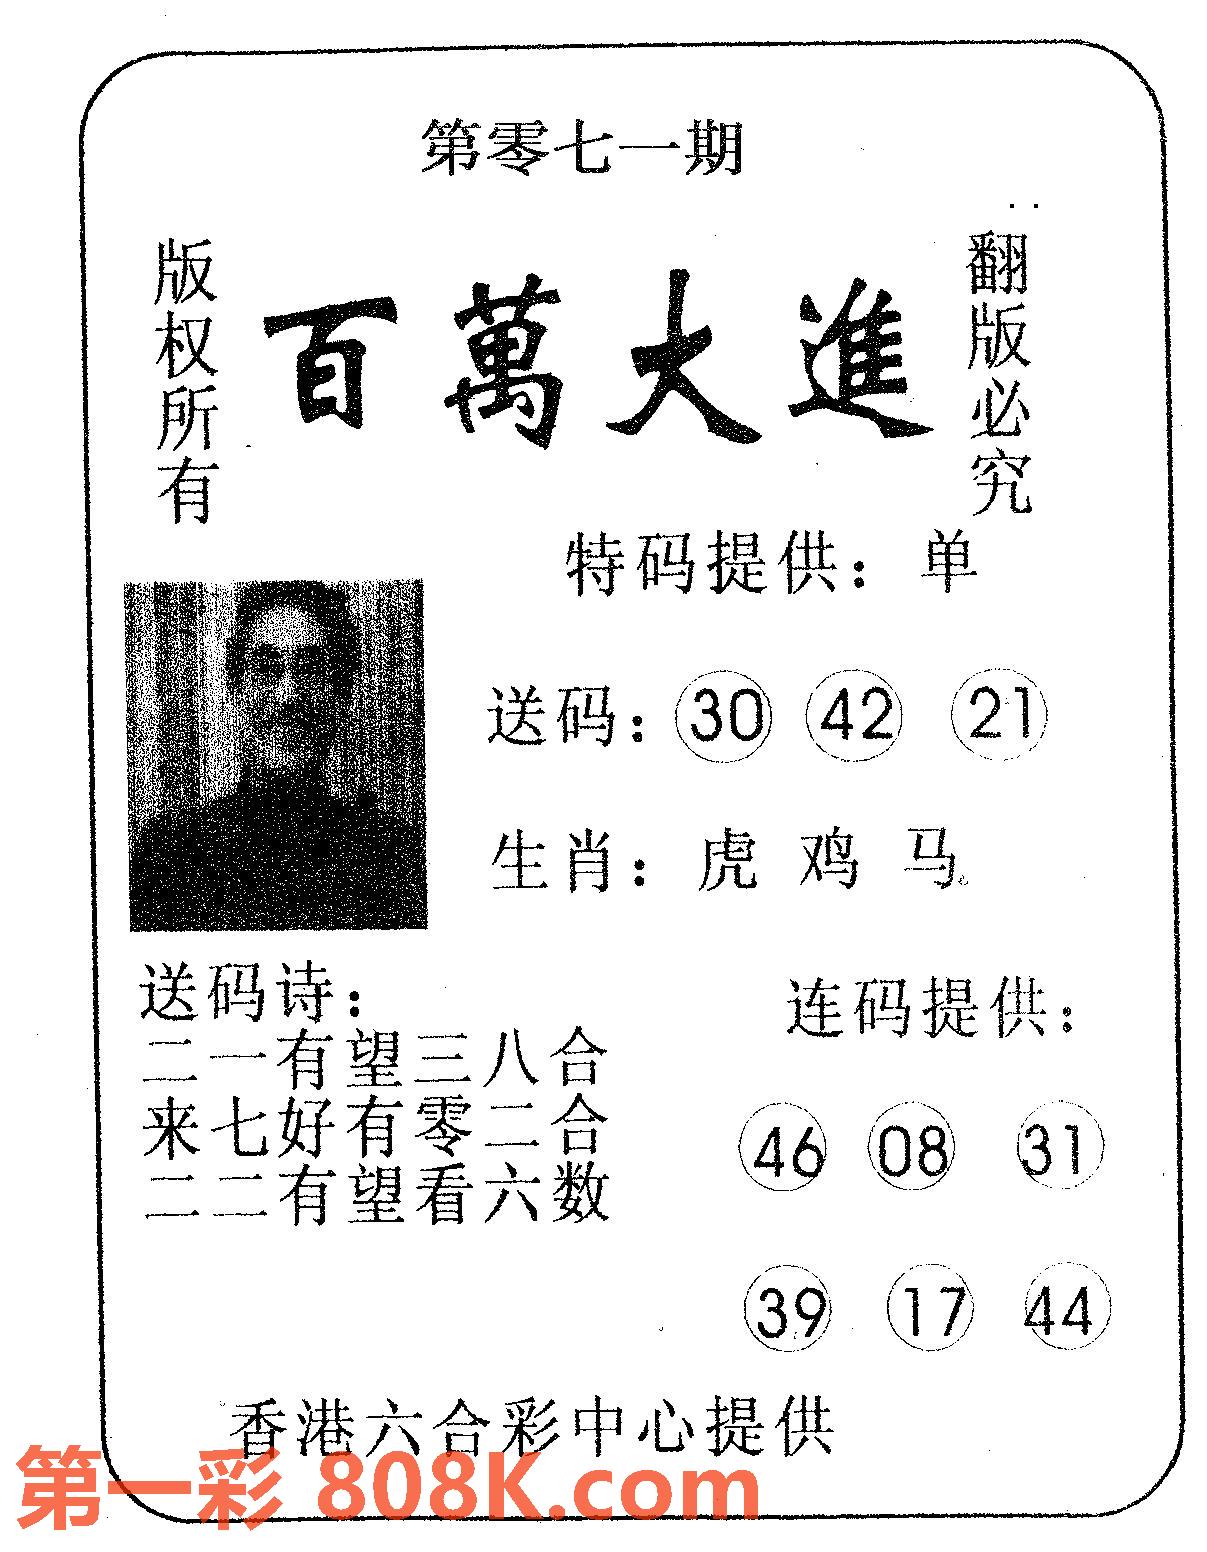 第零七一期
版权所有
百萬大進
翻版必究
特码提供：单
送码：30 42 21
生肖：虎 鸡 马
送码诗：
二一有望三八合
来七好有零二合
二二有望看六数
连码提供：
46 08 31
39 17 44
香港六合彩中心提供
第一彩 808K.com